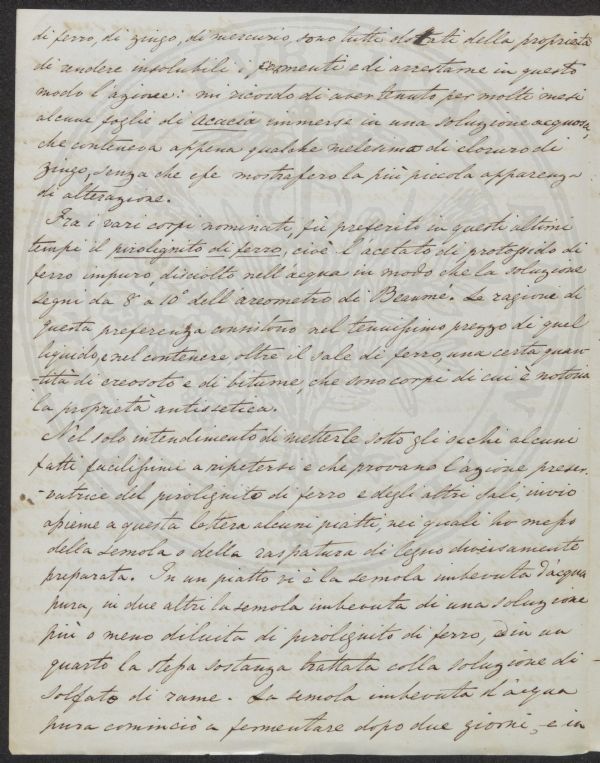 di ferro, di zingo, di mercurio sono tutti dotati della proprietà
di rendere insolubili i fermenti e di arrestarne in questo
modo l'azione: mi ricordo di aver tenuto per molti mesi
alcune foglie di Acacia immerse in una soluzione acquosa,
che conteneva appena qualche milesimo di cloruro di
zingo, senza che esse mostrassero la più piccola apparenza
di alterazione.
Fra i vari corpi nominati, fù preferito in questi ultimi
tempi il pirolignito di ferro, cioè l'acetato di protossido di
ferro impuro, disciolto nell'acqua in modo che la soluzione
segni da 8° a 10° dell'areometro di Beaumé. Le ragione di
questa preferenza consistono nel tenuissimo prezzo di quel
liquido, e nel contenere oltre il sale di ferro, una certa quan-
-tità di creosoto e di bitume, che sono corpi di cui è notoria
la proprietà antisetica.
Nel solo intendimento di metterle sotto gli occhi alcuni
fatti facilissimi a ripetersi e che provano l'azione preser-
-vatrice del pirolignito di ferro e degli altri sali, invio
assieme a questa lettera alcuni piatti, nei quali ho messo
della semola o della raspatura di legno diversamente
preparata. In un piatto vi è la semola imbevuta d'acqua
pura, in due altri la semola imbevuta di una soluzione
più o meno diluita di pirolignito di ferro, ed in un
quarto la stessa sostanza trattata colla soluzione di
solfato di rame. La semola imbevuta d'acqua
pura cominciò a fermentare dopo due giorni, e in